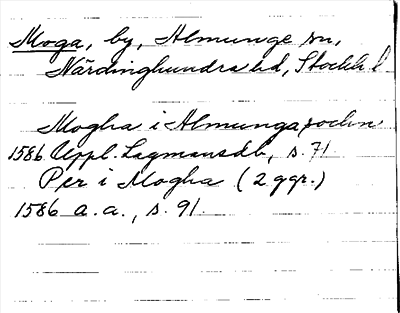 Moga, by, Almunge sn,
Närdinghundra hd, Stockh. l
Mogha i Almunga sochn
1586 Uppl. Lagmansdb, s. 71
Per i Mogha (2 ggr.)
1586 a. a., s. 91.